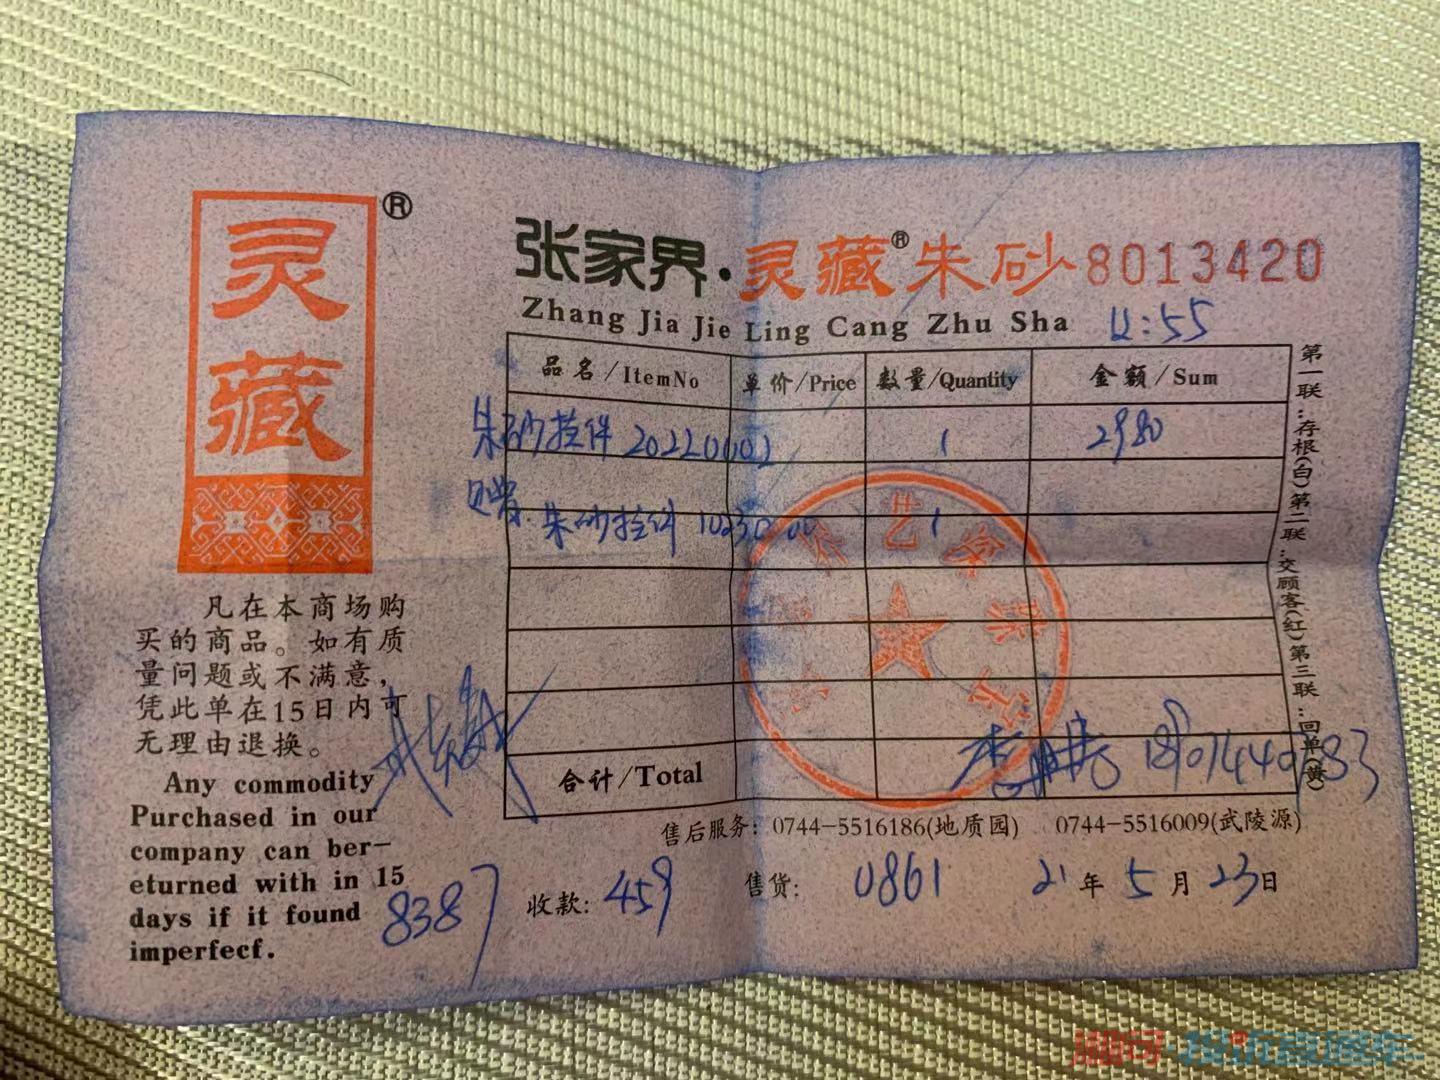 灵藏®
张家界·灵藏®朱砂 8013420
Zhang Jia Jie Ling Cang Zhu Sha 12:55
品名/ItemNo 单价/Price 数量/Quantity 金额/Sum
朱砂挂件 1 2980
赠: 朱砂挂件 1
合计/Total
第一联:存根(白)第二联:交顾客(红)第三联:回单(黄)
凡在本商场购
买的商品。如有质
量问题或不满意,
凭此单在15日内可
无理由退换。
Any commodity
Purchased in our
company can ber-
eturned with in 15
days if it found
imperfecf.
8387
售后服务: 0744-5516186(地质园) 0744-5516009(武陵源)
收款: 459 售货: 0861 21年5月23日
湘问·投诉直通车